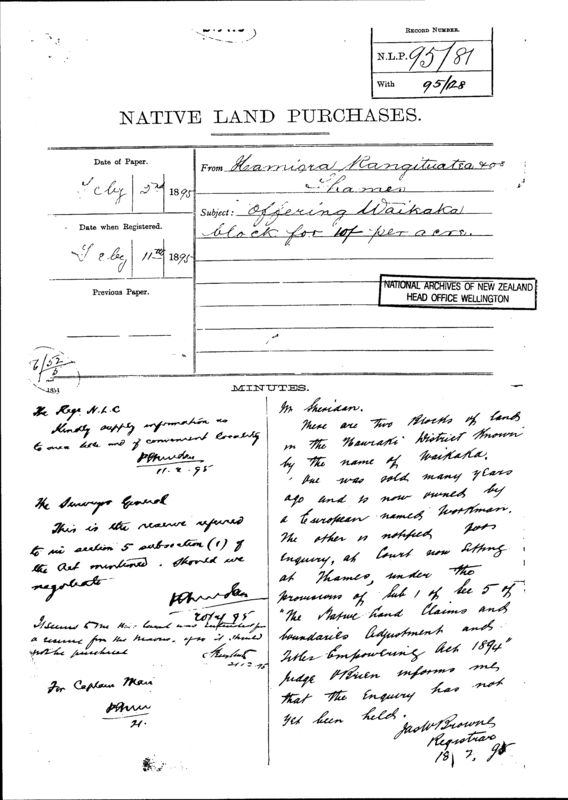 RECORD NUMBER.
N.L.P. 95/81
With 95/28
NATIVE LAND PURCHASES.
Date of Paper.
Feby 2nd 1895
Date when Registered.
Feby 11th 1895
Previous Paper.
From Hamiora Rangituatea & os
Thames
Subject: Offering Waikaka
block for 10/- per acre.
NATIONAL ARCHIVES OF NEW ZEALAND
HEAD OFFICE WELLINGTON
MINUTES.
The Regr N.L.C
Kindly supply information as
to area title and if convenient locality
P Sheridan
11.2.95
The Surveyor General
This is the reserve referred
to in section 5 subsection (1) of
the Act mentioned. Should we
negotiate
P Sheridan
20/2/95
It seems to me this land was intended for
a reserve for the Maoris, if so it should
not be purchased
21.2.95
For Captain Mair
21.
Mr Sheridan.
There are two Blocks of land
in the Hauraki District known
by the name of Waikaka.
One was sold many years
ago and is now owned by
a European named Workman.
The other is notified for
enquiry, at Court now sitting
at Thames, under the
provisions of Sub 1 of Sec 5 of
"The Native Land Claims and
boundaries Adjustment and
Titles Empowering Act 1894"
Judge O'Brien informs me
that the Enquiry has not
yet been held.
Jas W Browne
Registrar
18/2/95